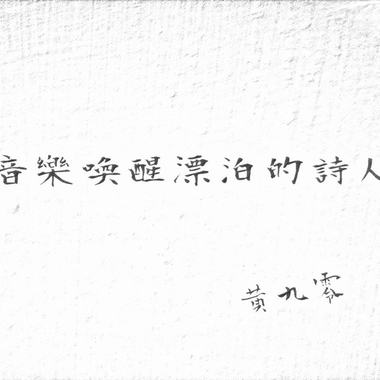 音樂喚醒漂泊的詩人
黃九零